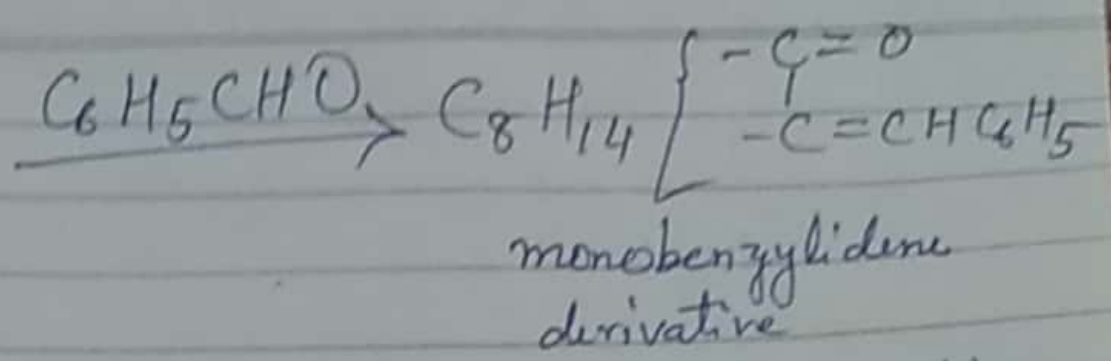 C₆H₅CHO → C₈H₁₄ { -C=O
-C=CHC₆H₅
monobenzylidene
derivative